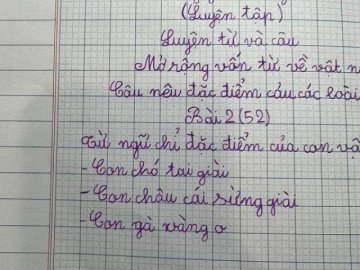 (Luyện tập)
Luyện từ và câu
Mở rộng vốn từ về vật n
Câu nêu đặc điểm cảu các loài
Bài 2 (52)
Từ ngữ chỉ đặc điểm của con vậ
- Con chó tai giài
- Con châu cái sừng giài
- Con gà vàng o